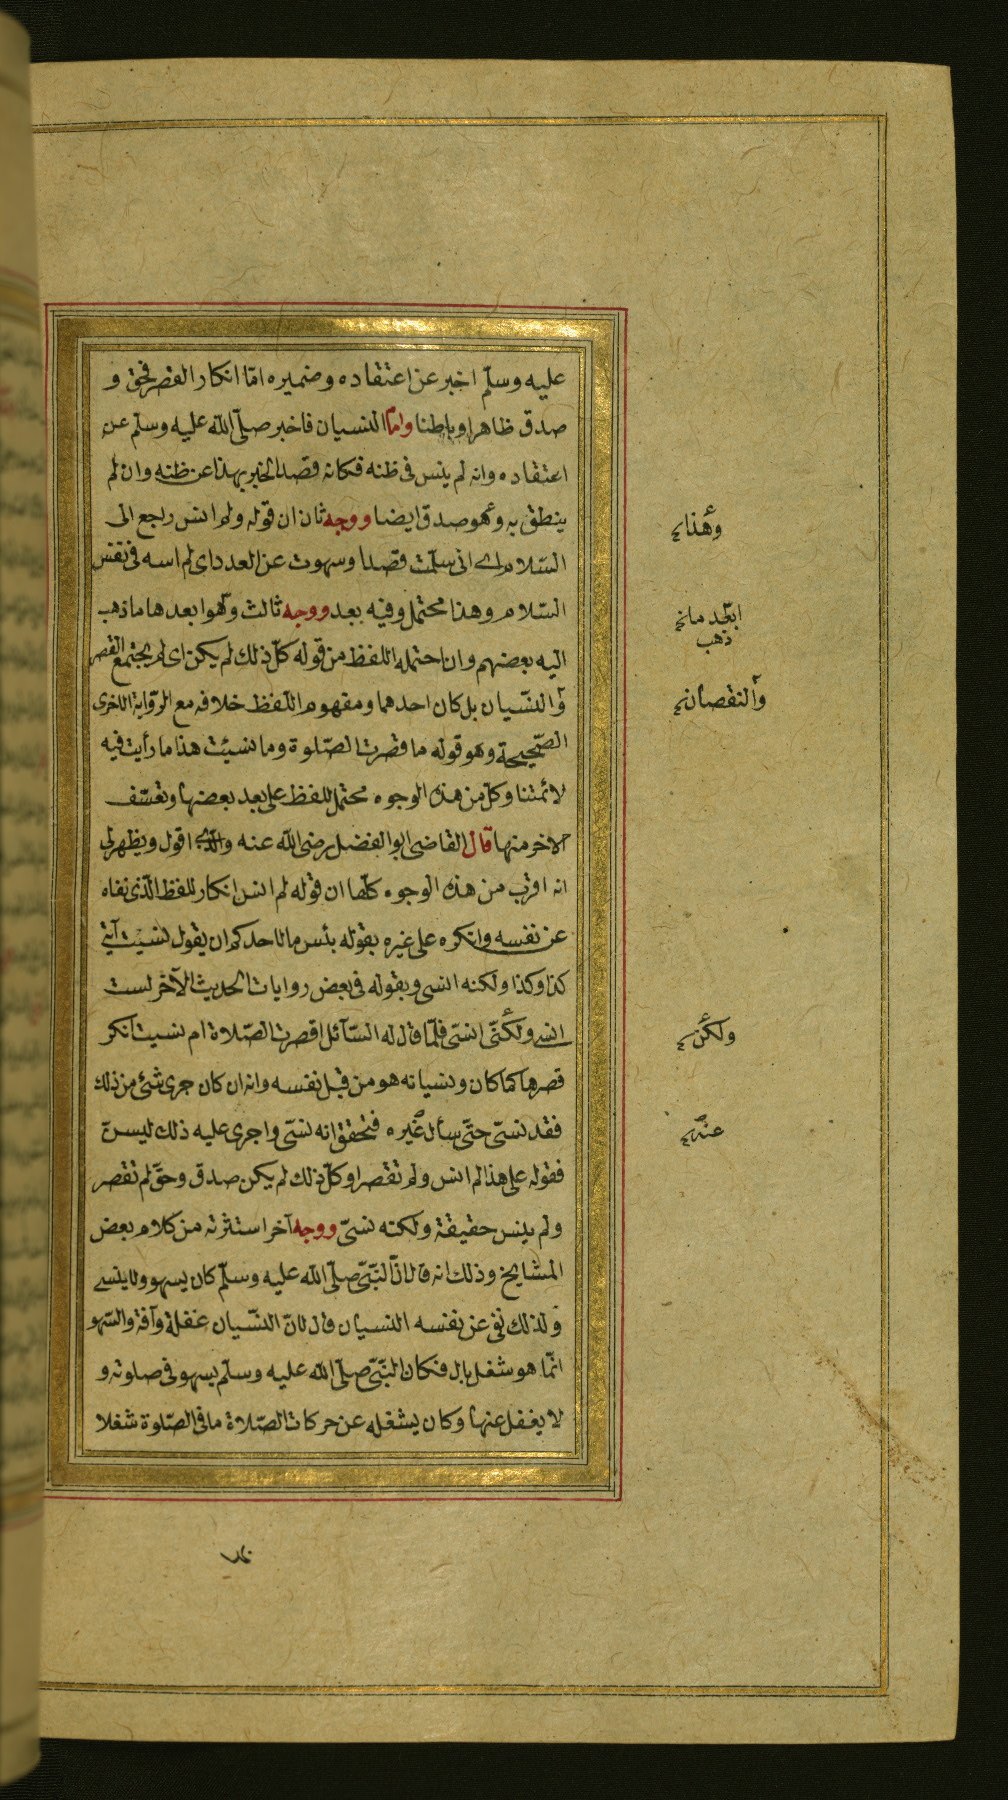 عليه وسلّم اخبر عن اعتقاده وضميره امّا انكار القصر فحق و
صدق ظاهرا وباطنا وامّا النسيان فاخبر صلّى الله عليه وسلّم عن
اعتقاده وانه لم ينس فى ظنه فكانه قصد الخبر بهذا عن ظنه وان لم
ينطق به وهو صدق ايضا ووجه ثان ان قوله ولم انس راجع الى
السّلام اى انى سلّمت قصدا وسهوت عن العدد اى لم اسه فى نفس
السّلام وهذا محتمل وفيه بعد ووجه ثالث وهو ابعدها ما ذهب
اليه بعضهم وان احتمله اللفظ من قوله كلّ ذلك لم يكن اى لم يجتمع القصر
والنسّيان بل كان احدهما ومفهوم اللفظ خلافه مع الرّواية الاخرى
الصّحيحة وهو قوله ما قصرت الصّلوة وما نسيت هذا ما رأيت فيه
لائمتنا وكلّ من هذه الوجوه محتمل للفظ على بعد بعضها وتعسّف
الاخر منها قال القاضى ابو الفضل رضى الله عنه والذى اقول ويظهر لى
انه اقرب من هذه الوجوه كلّها ان قوله لم انس انكار للفظ الّذى نفاه
عن نفسه وانكره على غيره بقوله بئس ما لاحدكم ان يقول نسيت آية
كذا وكذا ولكنه انسى وبقوله فى بعض روايات الحديث الآخر لست
انسى ولكنّى انسّى فلمّا قال له السّآئل اقصرت الصّلاة ام نسيت انكر
قصرها كما كان ونسيانه هو من قبل نفسه وانه ان كان جرى شئ من ذلك
فقد نسّى حتّى سأل غيره فتحقق انه نسّى واجرى عليه ذلك ليسنّ
فقوله على هذا لم انس ولم تقصر او كلّ ذلك لم يكن صدق وحقّ لم تقصر
ولم ينس حقيقة ولكنه نسّى ووجه آخر استثرته من كلام بعض
المشايخ وذلك انه قال انّ النّبّى صلّى الله عليه وسلّم كان يسهو ولا ينسى
ولذلك نفى عن نفسه النسيان قال لانّ النسّيان غفلة وآفة والسّهو
انّما هو شغل بال فكان النّبّى صلّى الله عليه وسلّم يسهو فى صلوته و
لا يغفل عنها وكان يشغله عن حركات الصّلاة ما فى الصّلوة شغلا
وهذا
ابعد ما
ذهب
والنقصان
ولكن
عنه